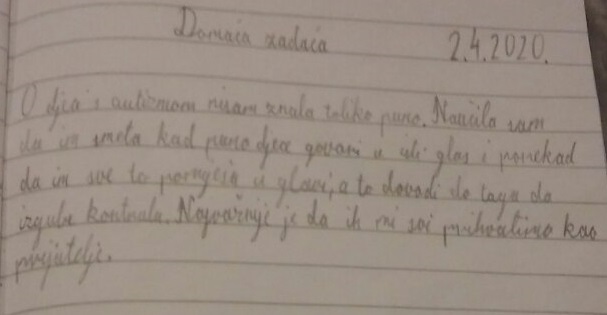 Domaća zadaća 2.4.2020.
O djeci s autizmom nisam znala toliko puno. Naučila sam
da im smeta kad puno djece govori u isti glas i ponekad
da im sve to u glavi, a to dovodi do toga da
izgube kontrolu. Najvažnije je da ih mi svi prihvatimo kao
prijatelje.